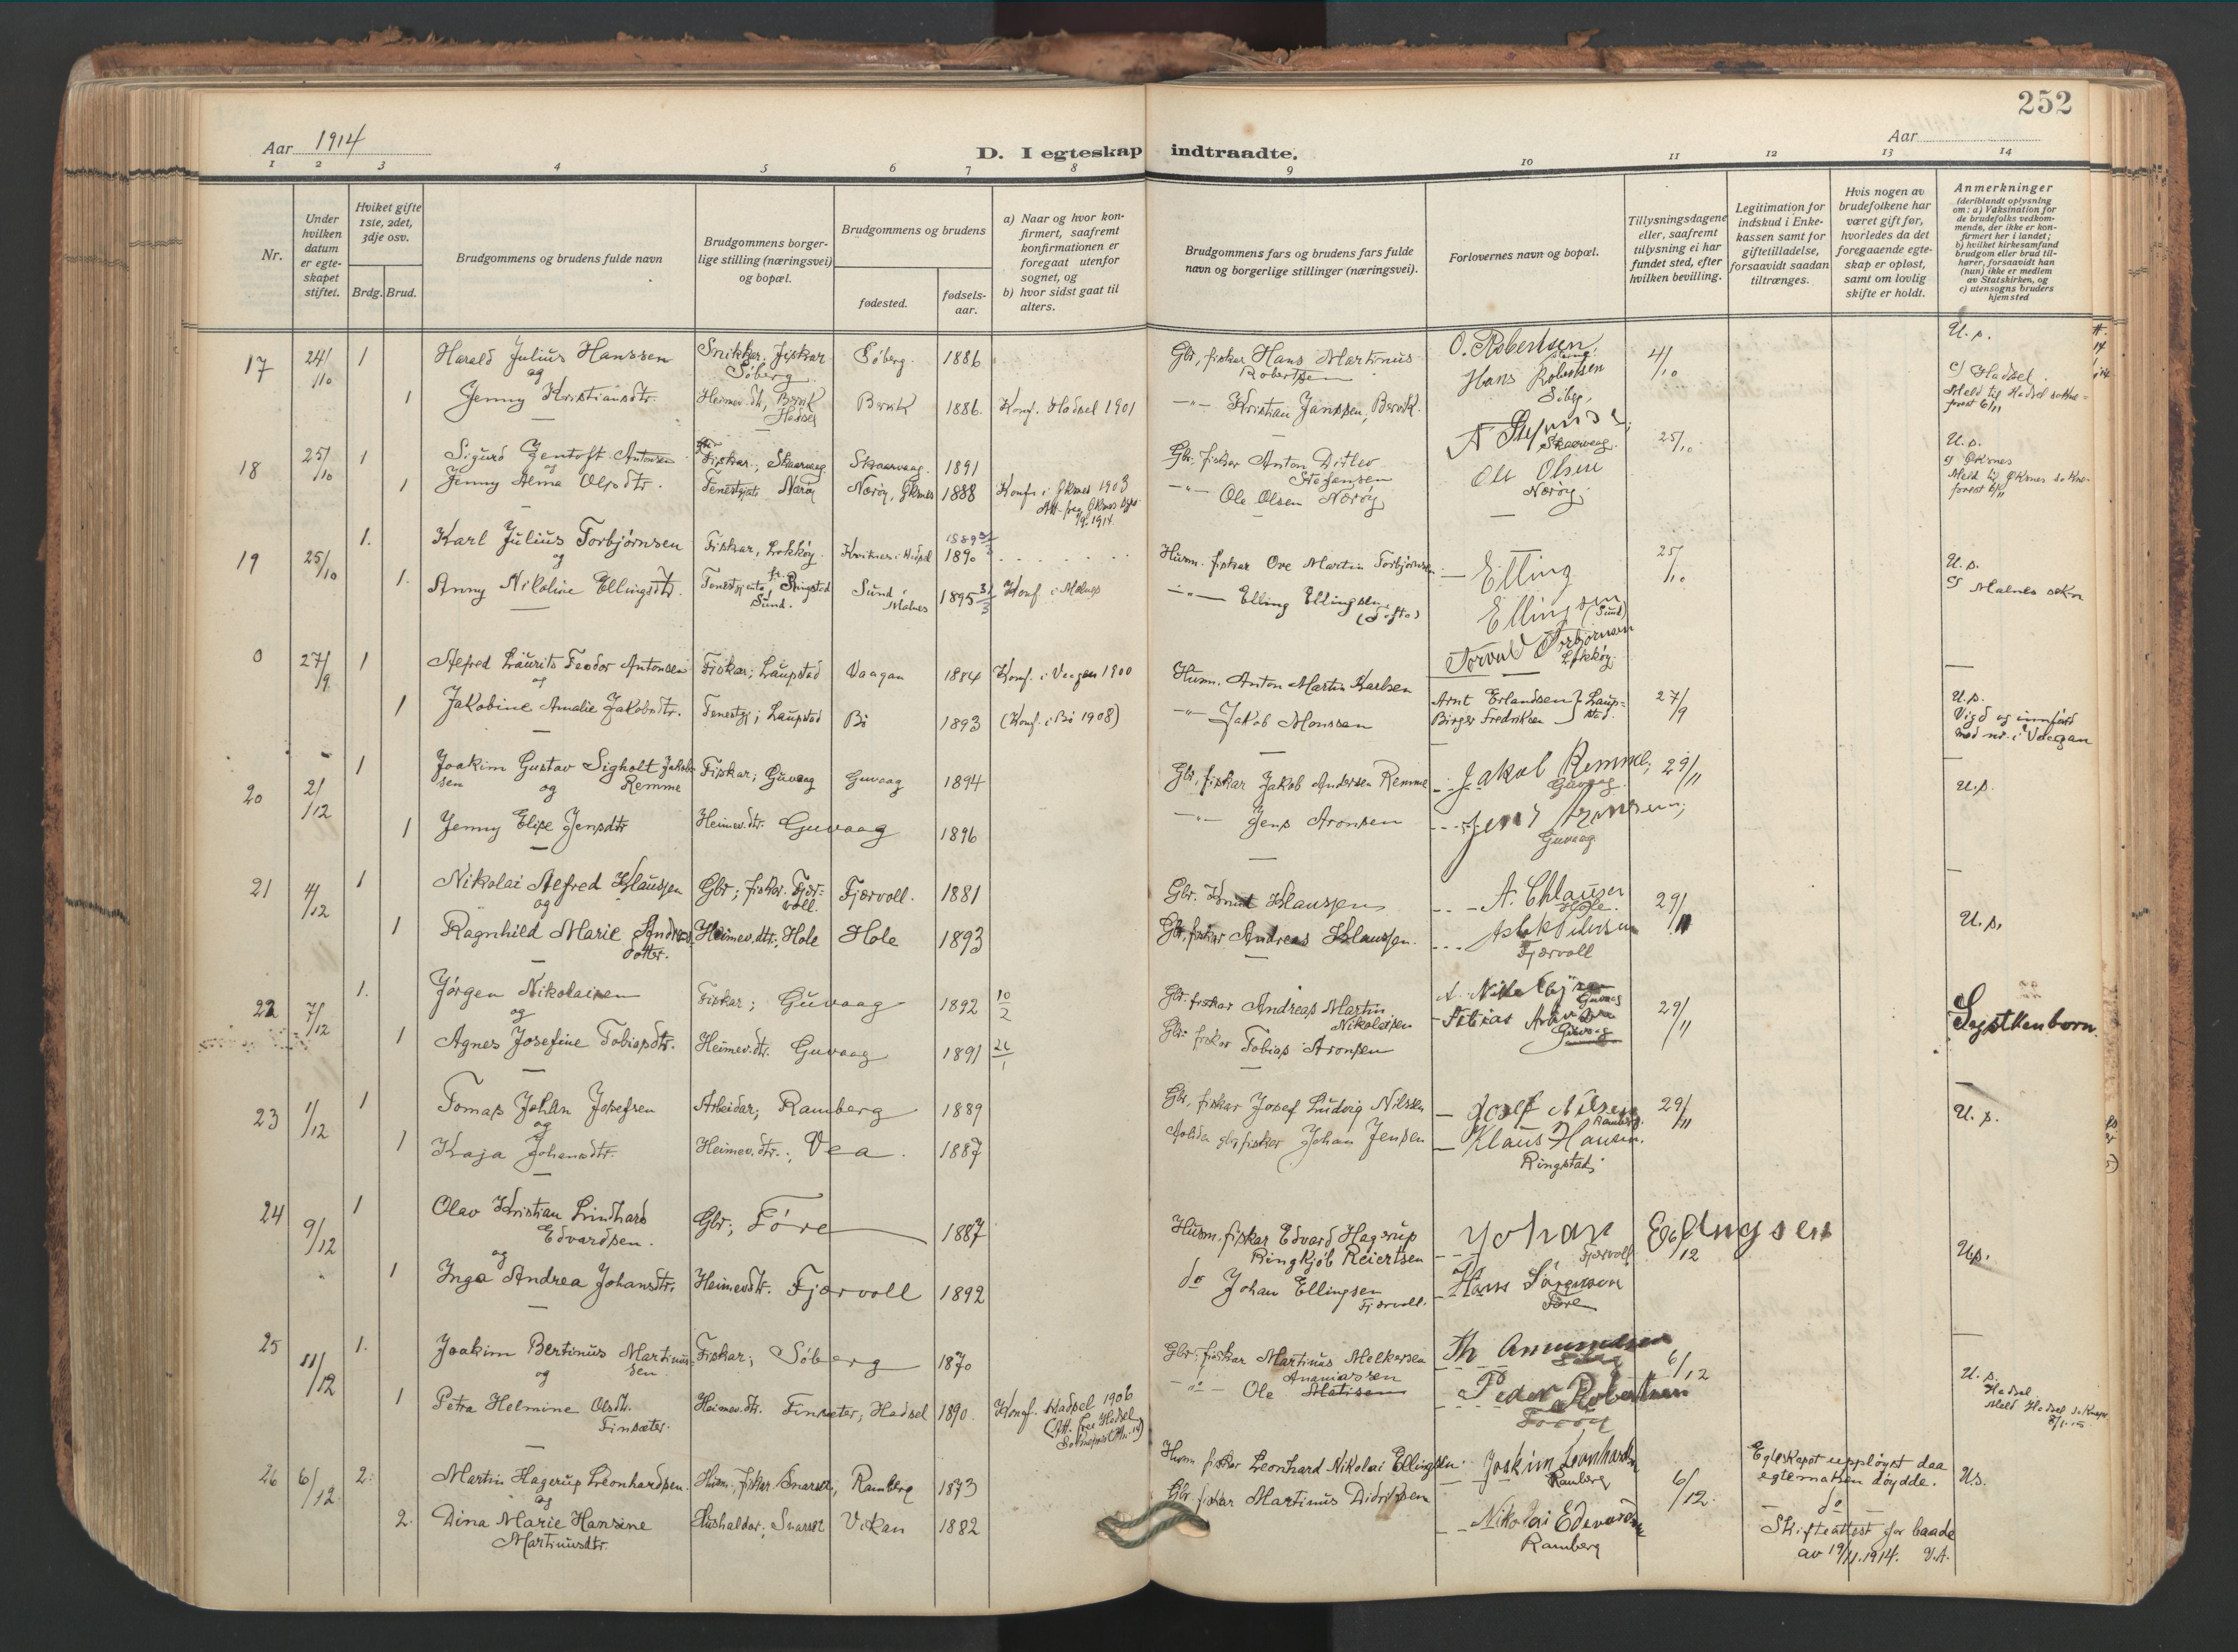 252
Aar 1914
D. I egteskap indtraadte.
Aar
1 2 3 4 5 6 7 8 9 10 11 12 13 14
Nr.
Under hvilken datum er egteskapet stiftet.
Hviket gifte 1ste, 2det, 3dje osv.
Brdg. Brud.
Brudgommens og brudens fulde navn
Brudgommens borgerlige stilling (næringsvei) og bopæl.
Brudgommens og brudens
fødested.
fødselsaar.
a) Naar og hvor konfirmert, saafremt konfirmationen er foregaat utenfor sognet, og
b) hvor sidst gaat til alters.
Brudgommens fars og brudens fars fulde navn og borgerlige stillinger (næringsvei).
Forlovernes navn og bopæl.
Tillysningsdagene eller, saafremt tillysning ei har fundet sted, efter hvilken bevilling.
Legitimation for indskud i Enkekassen samt for giftetilladelse, forsaavidt saadan tiltrænges.
Hvis nogen av brudefolkene har været gift før, hvorledes da det foregaaende egteskap er opløst, samt om lovlig skifte er holdt.
Anmerkninger
(deriblandt oplysning om: a) Vaksination for de brudefolks vedkommende, der ikke er konfirmert her i landet; b) hvilket kirkesamfund brudgom eller brud tilhører, forsaavidt han (hun) ikke er medlem av Statskirken, og c) utensogns bruders hjemsted
17 24/10 1 Harald Julius Hanssen Snikkar. Fiskar Søberg Søberg. 1886 Gbr, fiskar Hans Martinus Robertssen O. Robertsen 4/10 U. s.
og
1 Jenny Kristiansdtr. Heimev. dtr, Hadsel 1886. Konf. Hadsel 1901 -"- Kristian Janssen, Hans Robertsen Søberg c) Hadsel.
Meld til Hadsel sokneprest 6/11
18 25/10 1 Sigurd Gentoft Antonsen Fiskar; Skaarvaag Skaarvaag. 1891 Gbr. fiskar Anton Ditlev Stefansen Skaarvaag. 25/10 U. s.
og
1 Jenny Alma Olesdtr. Tenestgjente Nærøy Nærøy, Øksnes 1888 Konf. i Øksnes 1903 -"- Ole Olsen Nærøy Ole Olsen Nærøy c) Øksnes
Meld til Øksnes sokneprest 6/11
19 25/10 1. Karl Julius Torbjørnsen Fiskar, Lokkøy. 1890 Husm. fiskar Ove Martin Torbjørnsen Elling 25/10 U. s.
og
1. Anny Nikoline Ellingsdtr. Tenestgjente, Ringstad Sund. Sund i Malnes 1895 31/3 Konf. i Malnes -"- Elling Ellingsen Ellingsen (Sund) c) Malnes sokn
Torvald Torbjørnsen Lokkøy.
0 27/9 1 Alfred Laurits Teodor Antonsen Fiskar; Laupstad Vaagan 1884 Konf. i Vaagan 1900 Husm. Anton Martin Karlsen
og
1 Jakobine Amalie Jakobsdtr. Tenestgj; Laupstad Bø 1893 (Konf. i Bø 1908) -"- Jakob Monssen Arnt Erlandsen Birger Fredriksen } Laupstad. 27/9 U. s.
Vigd og innført med nr. i Vaagan
20 2/12 1 Joakim Gustav Sigholt Jakobsen Remme Fiskar; Guvaag Guvaag 1894 Gbr, fiskar Jakob Andersen Remme Jakob Remme, Guvaag. 29/11 U. s.
og
1 Jenny Elise Jensdtr Heimev. dtr. Guvaag 1896 -"- Jens Aronsen Jens Aronsen; Guvaag
21 4/12 1 Nikolai Alfred Klaussen Gbr; fiskar. Fjærvoll. Fjærvoll. 1881 Gbr. Knut Klaussen A. Chlausen Hole. 29/11
og
1 Ragnhild Marie Andreasdotter. Heimev. dtr; Hole Hole 1893 Gbr, fiskar Andreas Klaussen. Fjærvoll U. s.
22 7/12 1. Jørgen Nikolaisen Fiskar; Guvaag 1892 10/2 Gbr. fiskar Andreas Martin Nikolaisen Guvaag 29/11 Systkenborn
og
1 Agnes Josefine Tobiasdtr. Heimev. dtr. Guvaag 1891 Gbr. fiskar Tobias Aronsen Guvaag
23 1/12 1 Tomas Johan Josefsen Arbeidar; Ramberg 1889 Gbr, fiskar Josef Ludvig Nilssen Josef Nilsen Ramberg. 29/11 U. s.
og
1 Kaja Johansdtr. Heimev. dtr.; Vea. 1887 gbr fiskar Johan Jensen Klaus Hansen. Ringstad
24 9/12 1 Olav Kristian Lindhard Edvardsen. Gbr; Føre 1887 Husm. fiskar Edvard Hagerup Ringkjøb Reiertsen Johan Ellingsen Fjærvoll 6/12 U. s.
og
1 Inga Andrea Johansdtr. Heimevdtr. Fjærvoll 1892 do Johan Ellingsen Fjærvoll. Hans Sørensen Føre
25 11/12 1. Joakim Bertinus Martinussen Fiskar; Søberg 1870 Gbr. fiskar Martinus Melkersen Th Amundsen 6/12
og
1 Petra Helmine Olsdtr. Finsæter. Heimev. dtr. Finsæter; Hadsel 1890. Konf. Hadsel 1906 Ole Ananiassen Peder Robertsen U. s.
Hadsel
26 6/12 2. Martin Hagerup Leonhardsen. Husm. fiskar Snarset; Ramberg 1873 Husm fiskar Leonhard Nikolai Ellingsen. Joakim Leonhardsen Ramberg 6/12. Egteskapet uppløyst daa egtemaken døydde. U. s.
og
2. Dina Marie Hansine Martinusdtr. Hushaldar; Snarset Vikan 1882 Gbr. fiskar Martinus Didriksen Nikolai Edevardsen Ramberg do
Skifteattest for baade av 19/11.1914. V.A.